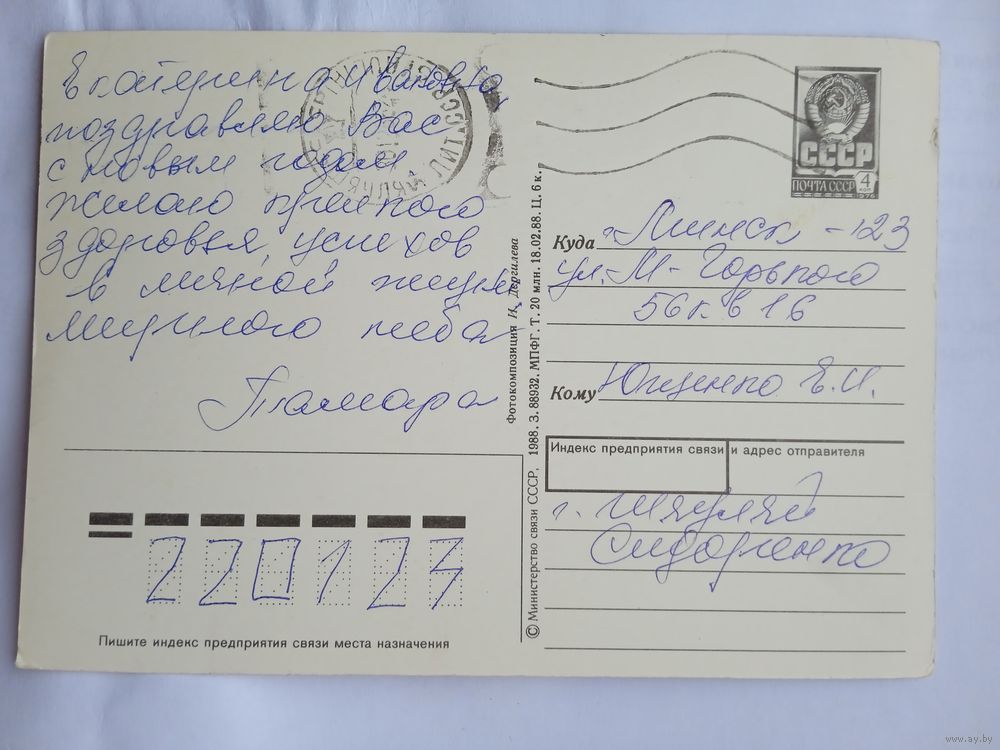 Екатерина Ивановна
поздравляю Вас
с новым годом
желаю крепкого
здоровья, успехов
в личной жизни,
мирного неба
Тамара
СССР
ПОЧТА СССР
4
КОП
1976
Куда г. Минск - 123
ул. М - Горького
56 кв 16
Кому Ющенко Е.И.
Индекс предприятия связи и адрес отправителя
г. Шяуляй
Сидоренко
220123
Пишите индекс предприятия связи места назначения
Фотокомпозиция И. Дергилева
© Министерство связи СССР, 1988. З. 88932. МПФГ. Т. 20 млн. 18.02.88. Ц. 6 к.
www.ay.by